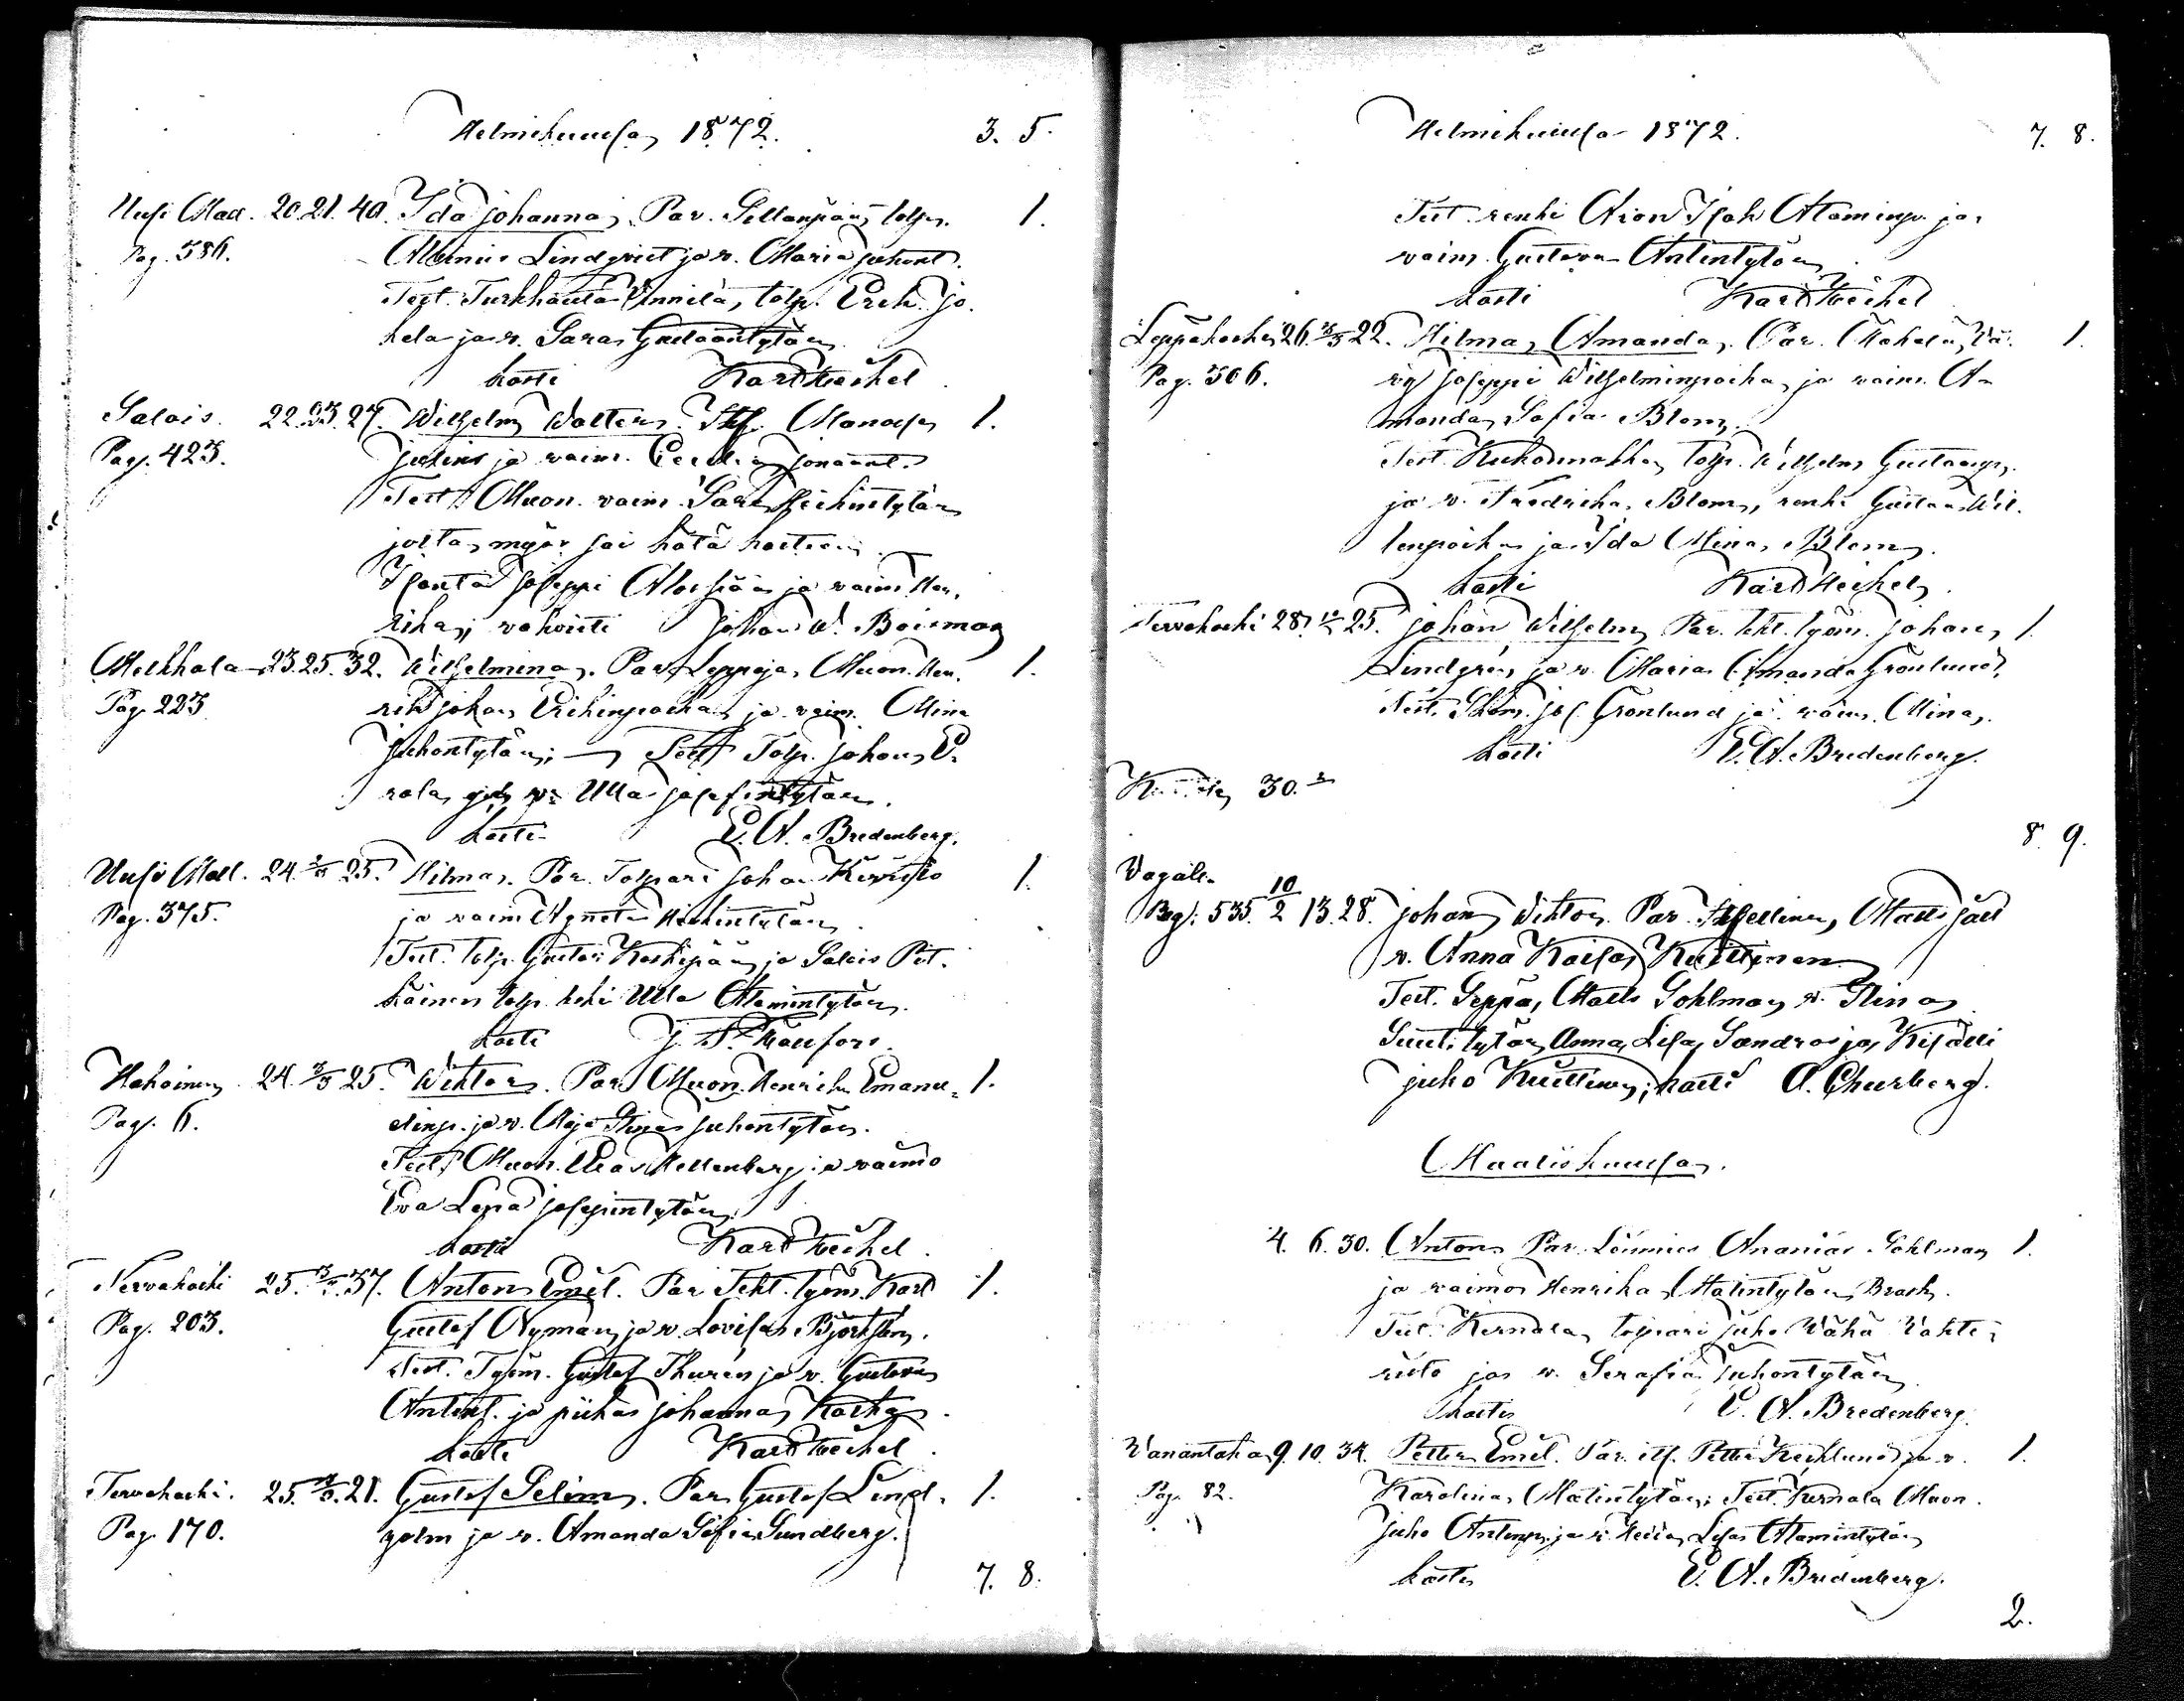 Helmikuussa 1872. 3. 5.
Uusi Mad. 20. 21. 40. Ida Johanna, Par. Sellanpään tolp. 1.
Pag. 586. Lindqvist ja v. Maria Juhont.
Test. Turkhauta Annila, tolp. Erik Jo-
kela ja v. Sara Gustaantytär
kasti Karl Heikel
Salais. 22. 27. Wilhelm Walter. Itf. Manasse 1.
Pag. 423. Julius ja vaim. Jonaant.
Test. Muon. vaim. Sara Heikintytär
joita myös sai hätä kasteen
Isäntä Joseppi ja vaim. Hen-
rika; vahvisti Johan W. Boisman
Melkkola 23. 25. 32. Wilhelmina, Par. Leppoja, Muon. Hen- 1.
Pag. 223 rik Johan Erikinpoika ja vaim. Mina
Juhontytär; Test. Tolp. Johan E-
rola ja v. Ulla Josefintytär.
kasti E. A. Bredenberg.
Uusi Mall. 24. 2/3 25. Hilma, Par. Tolppari Johan 1.
Pag. 375. ja vaim. Agneta Heikintytär
Test. tolp. Gustaa Koskipää ja Salais Pit-
käinen tolp. leski Ulla Adamintytär.
kasti
Hakoinen 24. 3/3 25. Wiktor. Par. Muon. Henrik Emanu- 1.
Pag. 6. elinp. ja v. Maja Stina Juhontytär.
Test. Muon. Elias Mellenberg ja vaimo
Eva Lena Josepintytär
kasti Karl Heikel
Tervakoski 25. 37. Anton Emil. Par. Teht. työm. Karl 1.
Pag. 203. Gustaf Nyman ja v. Lovisa Björksten.
Test. Työm. Gustaf Thuren ja v. Gustava
Antint. ja piika Johanna Koska
kasti Karl Heikel
Tervakoski. 25. 21. Gustaf Selim. Par. Gustaf Lind- 1.
Pag. 170. golm ja v. Amanda Sofia Sundberg.
7. 8.
Helmikuussa 1872. 7. 8.
Test. renki Aron Isak Ataminp. ja
vaim. Gustava Antintytär
kasti Karl Heikel
Leppäkoski 26. 22. Hilma Amanda, Par. Mäkelä, Vä- 1.
Pag. 306. vy Joseppi Wilhelminpoika ja vaim. A-
manda Sofia Blom,
Test. Kukonnokka Tolp. Wilhelm Gustaanp.
ja v. Fredrika Blom, renki Gustaa Wil-
lenpoika ja Ida Mina Blom.
kasti Karl Heikel
Tervakoski 28. 25. Johan Wilhelm Par. teht. työm. Johan 1.
Lindgren ja v. Maria Amanda Grönlund.
Test. Jos. Grönlund ja vaim. Mina,
kasti E. A. Bredenberg.
30.
8. 9.
Vagal.
Pag. 535. 10/2 13. 28. Johan Viktor. Par. Itsellinen, Matts
v. Anna Kaisa Kuittinen
Test. Seppä, Matts Sohlman v. Stina
tytär Anna Lisa Sandra ja Kisälli
Juho Kuittinen; kasti A. Churberg.
Maaliskuussa.
4. 6. 30. Anton Par. Loinnies Ananias Sohlman 1.
ja vaimo Henrika Matintytär Brask.
Test. Kernala tolppari Juho Vähä Vahte-
risto ja v. Serafia Juhontytär
kasti E. A. Bredenberg
Vanantaka 9. 10. 34. Petter Emil. Par. itf. Petter Reiklund ja v. 1.
Pag. 82. Karolina Matintytär; Test. Kernala Muon.
Juho Antinp. ja v. Lisa Atamintytär
kasti E. A. Bredenberg.
2.